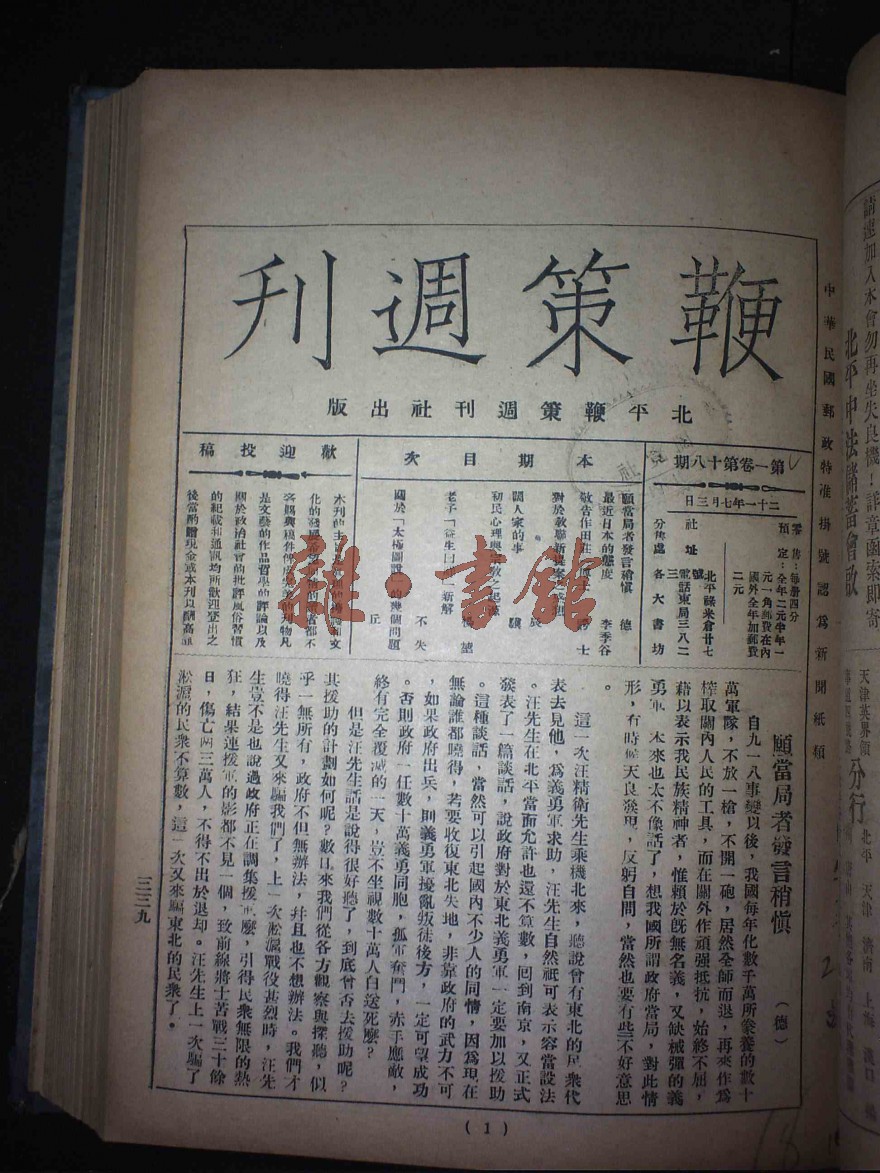 鞭策週刊
北平鞭策週刊社出版
第一卷第十八期
二十一年七月三日
零售：每冊四分
預定：全年二元半年一
元一角郵費在內
國外全年加郵費
二元
社址
北平祿米倉廿七
號
電話東局三八二
三
分售處 各大書坊
本期目次
願當局者發言稍愼 德
最近日本的態度 李季谷
敬告作田莊
對於教聯新提案
士
國人家的事
初民心理與
老子「
」新解
不失
關於「太極圖說」的幾個問題
丘
歡迎投稿
是文藝的作品哲學的評論以及
關於政治社會的批評風俗習慣
的紀載和通訊均所歡迎登出之
後當酌贈現金或本刊以酬高誼
願當局者發言稍愼
（德）
自九一八事變以後，我國每年化數千萬所豢養的數十
萬軍隊，不放一槍，不開一砲，居然全師而退，再來作爲
榨取關內人民的工具，而在關外作頑强抵抗，始終不屈，
藉以表示我民族精神者，惟賴於旣無名義，又缺械彈的義
勇軍，本來也太不像話了，想我國所謂政府當局，對此情
形，有時候天良發現，反躬自問，當然也要有些不好意思
。
這一次汪精衛先生乘機北來，聽說曾有東北的民衆代
表去見他，爲義勇軍求助，汪先生自然祇可表示容當設法
。汪先生在北平當面允許也還不算數，回到南京，又正式
發表了一篇談話，說政府對於東北義勇軍一定要加以援助
。這種談話，當然可以引起國內不少人的同情，因爲現在
無論誰都曉得，若要收復東北失地，非靠政府的武力不可
，如果政府出兵，則義勇軍擾亂叛徒後方，一定可望成功
。否則政府一任數十萬義勇同胞，孤軍奮鬥，赤手應敵，
終有完全覆滅的一天，豈不坐視數十萬人白送死麼？
但是汪先生話是說得很好聽了，到底曾否去援助呢？
其援助的計劃如何呢？數日來我們從各方觀察與探聽，似
乎一無所有，政府不但無辦法，幷且也不想辦法。我們才
曉得汪先生又來騙我們了，上一次淞滬戰役甚烈時，汪先
生豈不是也說過政府正在調集援軍麼，引得民衆無限的熱
狂，結果連援軍的影都不見一個，致前線將士苦戰三十餘
日，傷亡兩三萬人，不得不出於退却。汪先生上一次騙了
淞滬的民衆不算數，這一次又來騙東北的民衆了。
（1）
三三九
中華民國郵政特准掛號認爲新聞紙類
請速加入本會勿再坐失良機！詳章函索即寄
北平中法儲蓄會啟
天津英界領
分行
北平 天津 濟南 上海 漢口
雜·書館